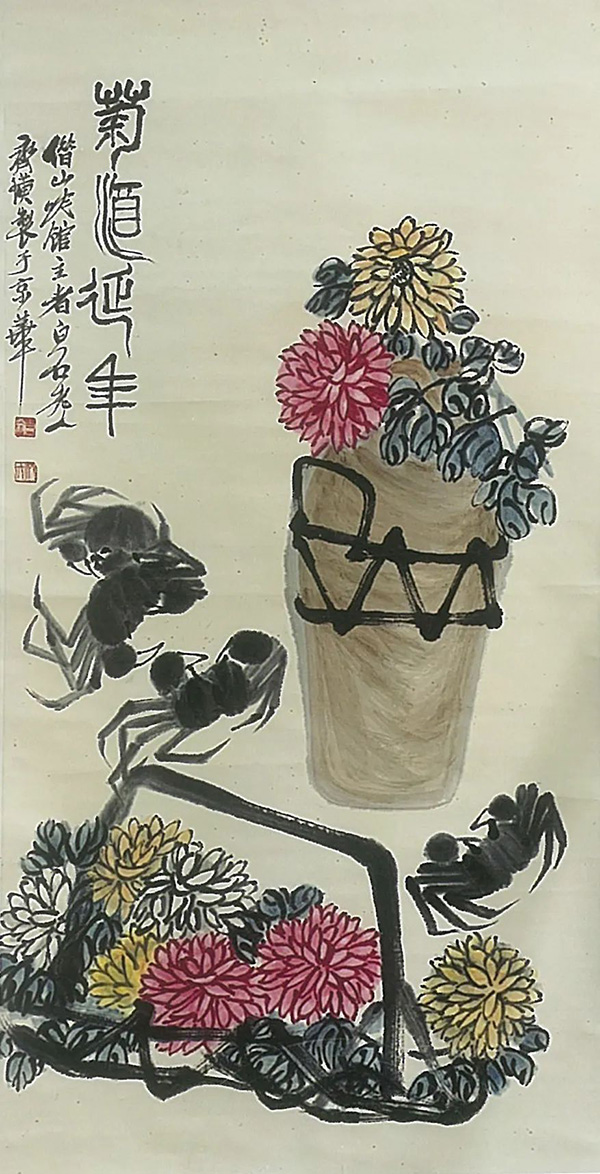 菊酒延年
借山吟館主者白石老人
齊璜製于京華